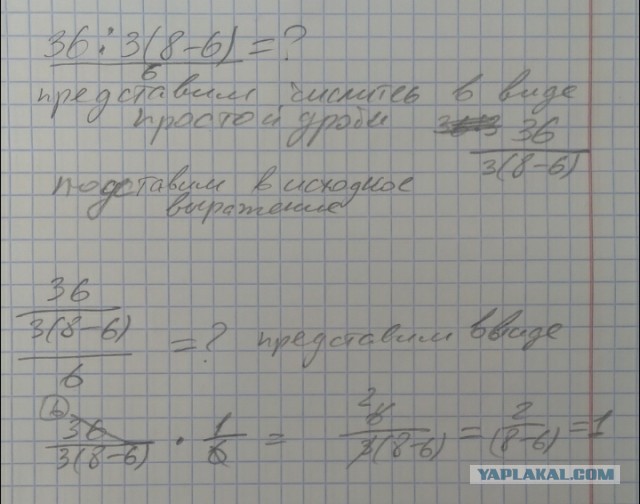 36 : 3(8-6) = ?
6
представим числитель в виде
простой дроби 36
3(8-6)
подставим в исходное
выражение
36
3(8-6)
6
= ? представим в виде
6
36 · 1 = 2 6 = 2 = 1
3(8-6) 6 3(8-6) (8-6)
YAPLAKAL.COM